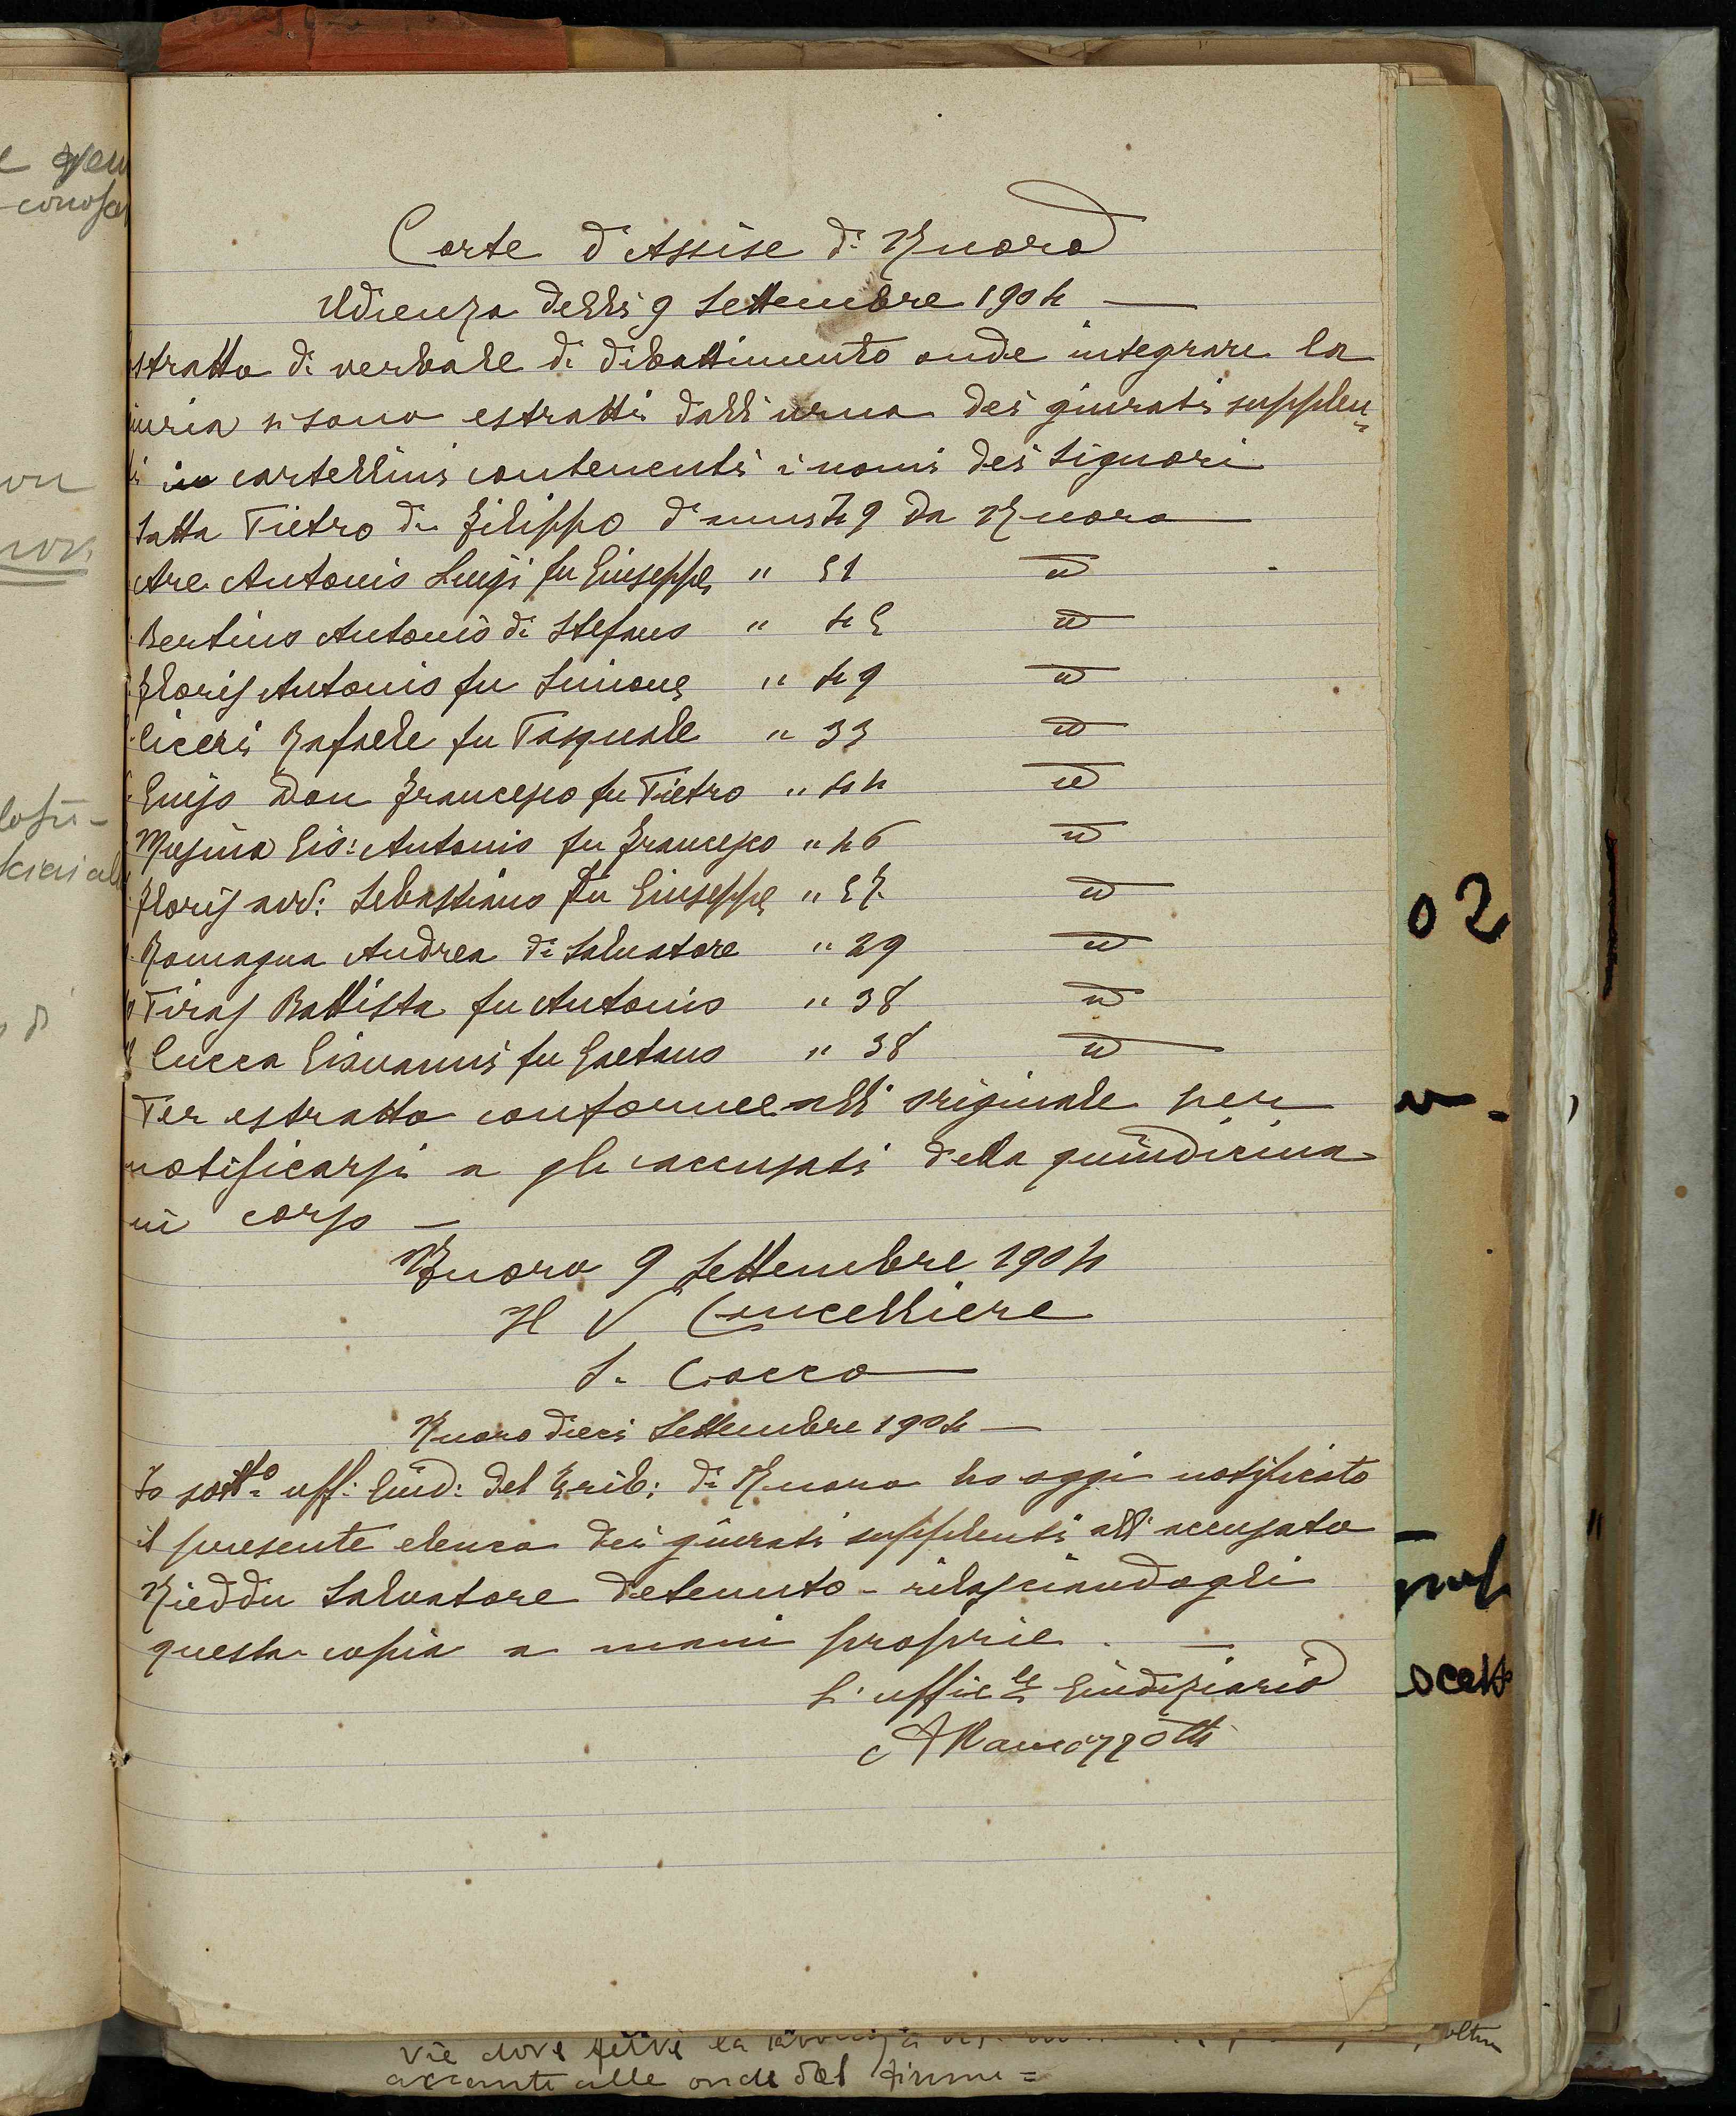 Corte d'Assise di Nuoro
Udienza delli 9 Settembre 1904 —
stratto di verbale di dibattimento onde integrare la
uria si sono estratti dall'urna dei giurati supplen=
ti in cartellini contenenti i nomi dei signori
Satta Pietro di Filippo d'anni 49 da Nuoro
Are Antonio Luigi fu Giuseppe " 51 id
Bertino Antonio di Stefano " 45 id
Floris Antonio fu Simone " 49 id
Ciceri Rafaele fu Pasquale " 33 id
Guiso Don Francesco fu Pietro " 44 id
Musina Gio: Antonio fu Francesco " 46 id
Floris avv: Sebastiano fu Giuseppe " 57 id
Romagna Andrea di Salvatore " 29 id
Piras Battista fu Antonio " 38 id
Cucca Giovanni fu Gaetano " 38 id
Per estratto conforme all'originale per
notificarsi a gli accusati della quindicina
in corso —
Nuoro 9 Settembre 1904
Il V Cancelliere
S. Cocco
Nuoro dieci Settembre 1904 —
Io sott.o uff: Giud: del Trib: di Nuoro ho oggi notificato
il presente elenco dei giurati supplenti all'accusato
Nieddu Salvatore detenuto - rilasciandogli
questa copia a mani proprie. —
L'uffic.le Giudiziario
A Ramazzotti
02
vie dove
accanto alle onde del fiume =